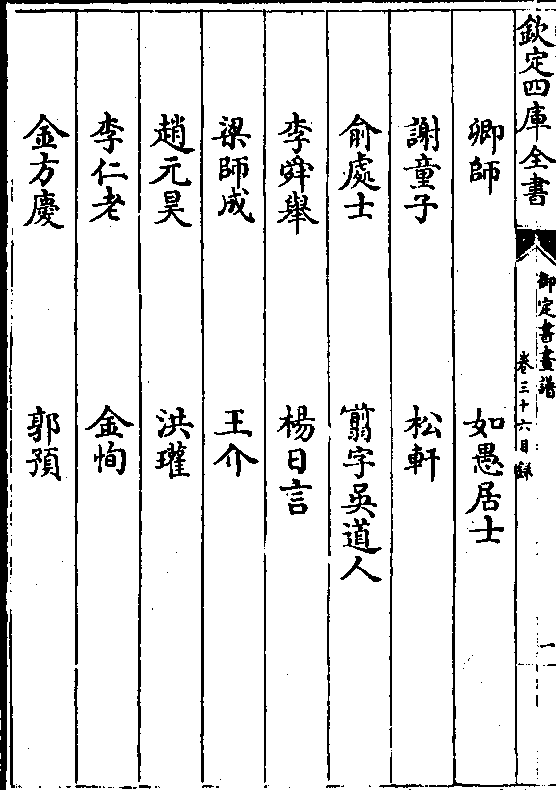 欽定四庫全書
御定書畫譜
卷三十六目錄
一
卿師 如愚居士
謝童子 松軒
俞處士 翦字吳道人
李舜舉 楊日言
梁師成 王介
趙元昊 洪瓘
李仁老 金恂
金方慶 郭預